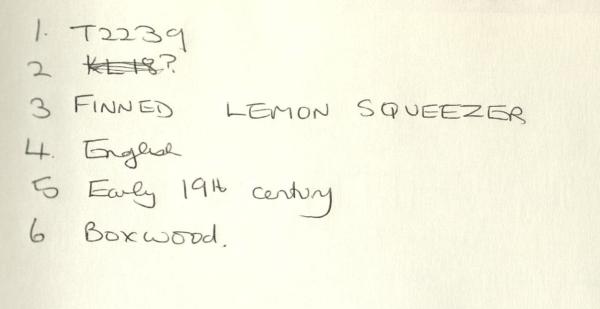 1. T2239
2 KL18?
3 FINNED LEMON SQUEEZER
4. English
5 Early 19th century
6 Boxwood.